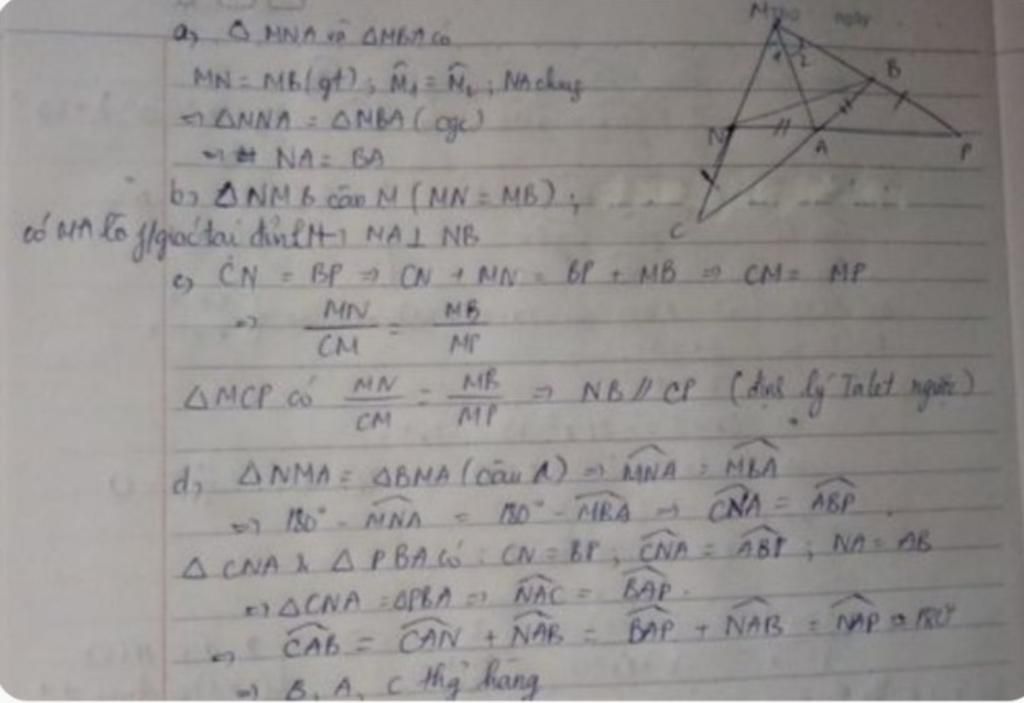 a, Δ MNA và ΔMBA có
MN = MB (gt) ; M̂₁ = M̂₂ ; NA chung
⇒ ΔMNA = ΔMBA (cgc)
⇒ NA = BA
b, Δ NMB cân M (MN = MB) ;
có MA là f/giác tại đỉnh M ⇒ NA ⊥ NB
c, CN = BP ⇒ CN + MN = BP + MB ⇒ CM = MP
⇒ MN/CM = MB/MP
Δ MCP có MN/CM = MB/MP ⇒ NB // CP (định lý Talet ngược)
d, ΔNMA = ΔBMA (câu A) ⇒ \widehat{MNA} = \widehat{MBA}
⇒ 180° - \widehat{MNA} = 180° - \widehat{MBA} ⇒ \widehat{CNA} = \widehat{ABP}
Δ CNA & Δ PBA có : CN = BP ; \widehat{CNA} = \widehat{ABP} ; NA = AB
⇒ ΔCNA = ΔPBA ⇒ \widehat{NAC} = \widehat{BAP}
⇒ \widehat{CAB} = \widehat{CAN} + \widehat{NAB} = \widehat{BAP} + \widehat{NAB} = \widehat{NAP} = 180°
⇒ B, A, C thẳng hàng
M
ngày
1 2
B
N
A
P
C